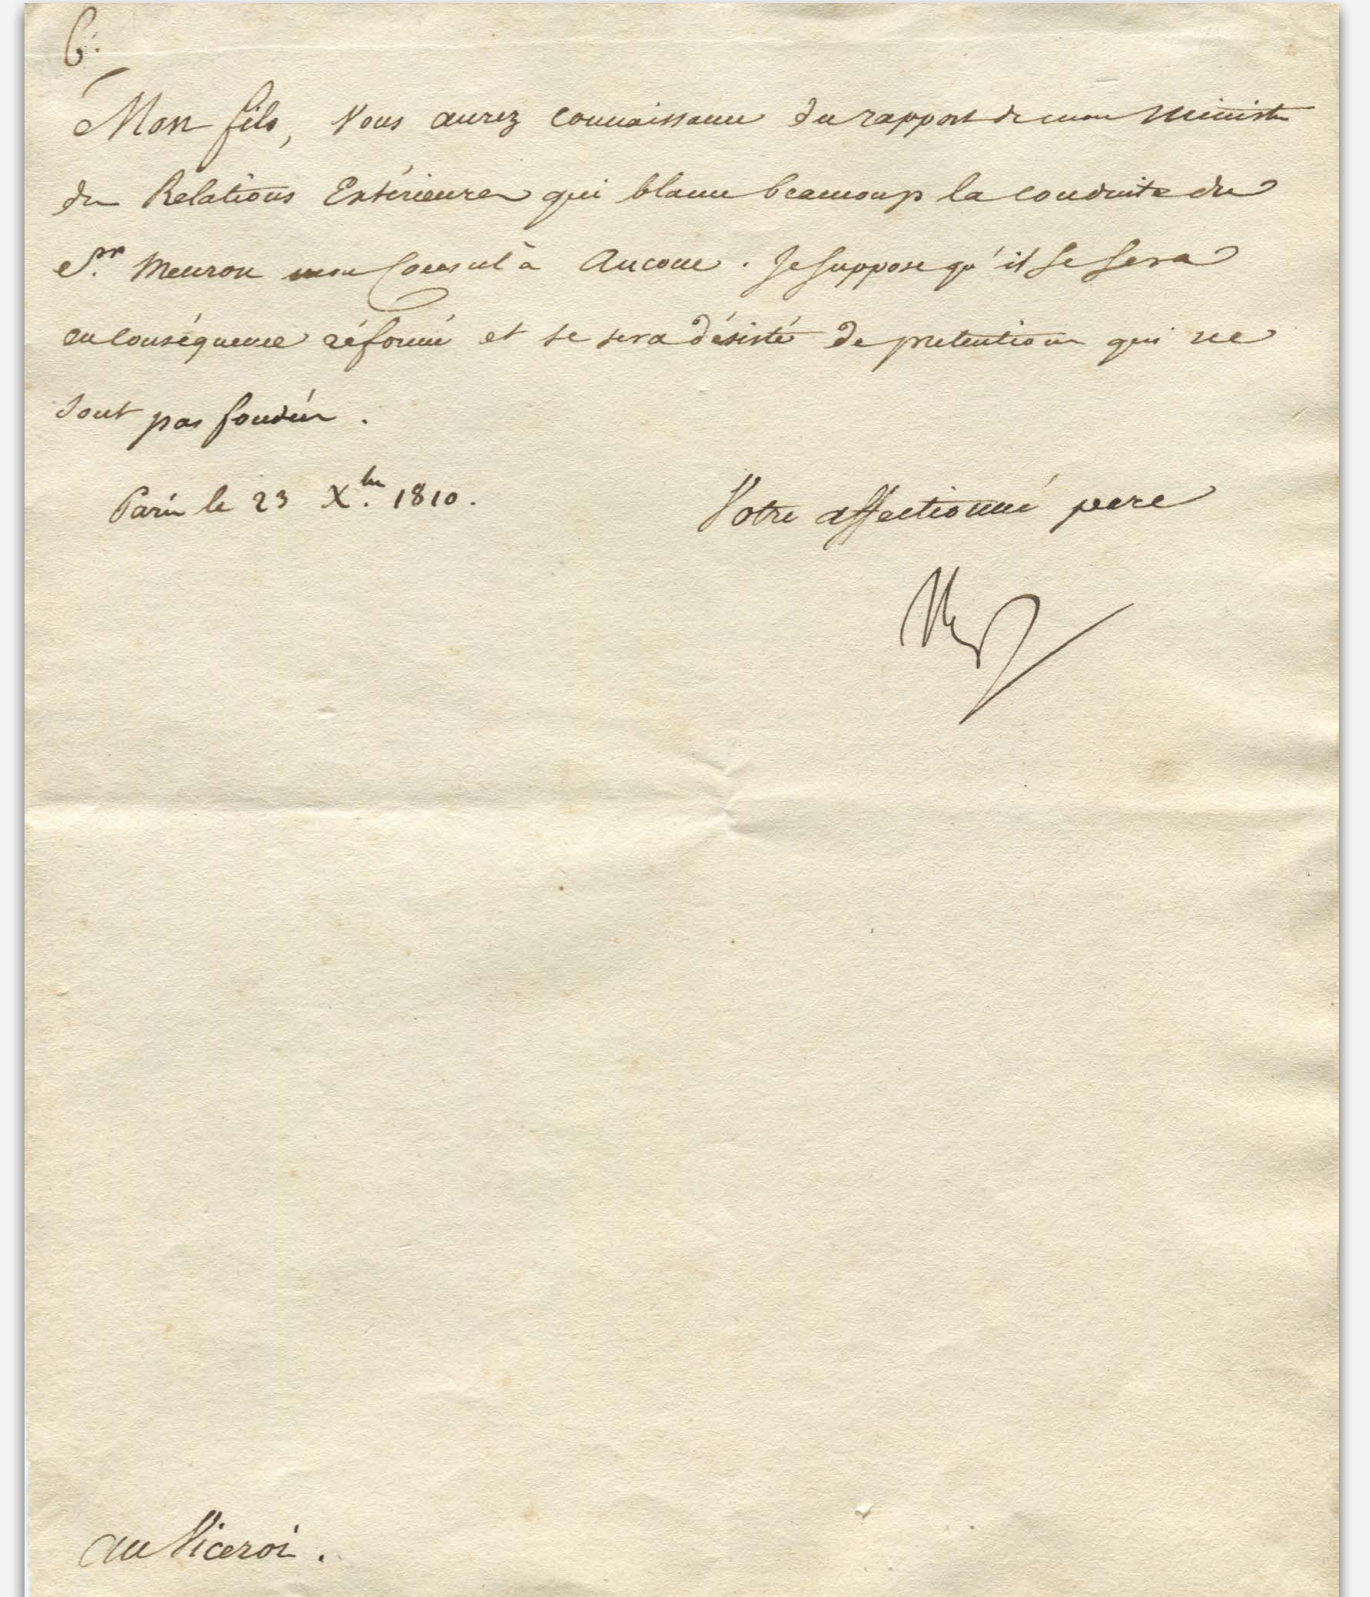 6.
Mon fils, Vous aurez connaissance du rapport de mon Ministre
des Relations Extérieures qui blame beaucoup la conduite du
S.r Meuron mon Consul à Ancone. Je suppose qu'il se sera
en conséquence réformé et se sera désisté de pretentions qui ne
sont pas fondées.
Paris le 23 X.bre 1810.
Votre affectionné pere
Nap
au Viceroi.